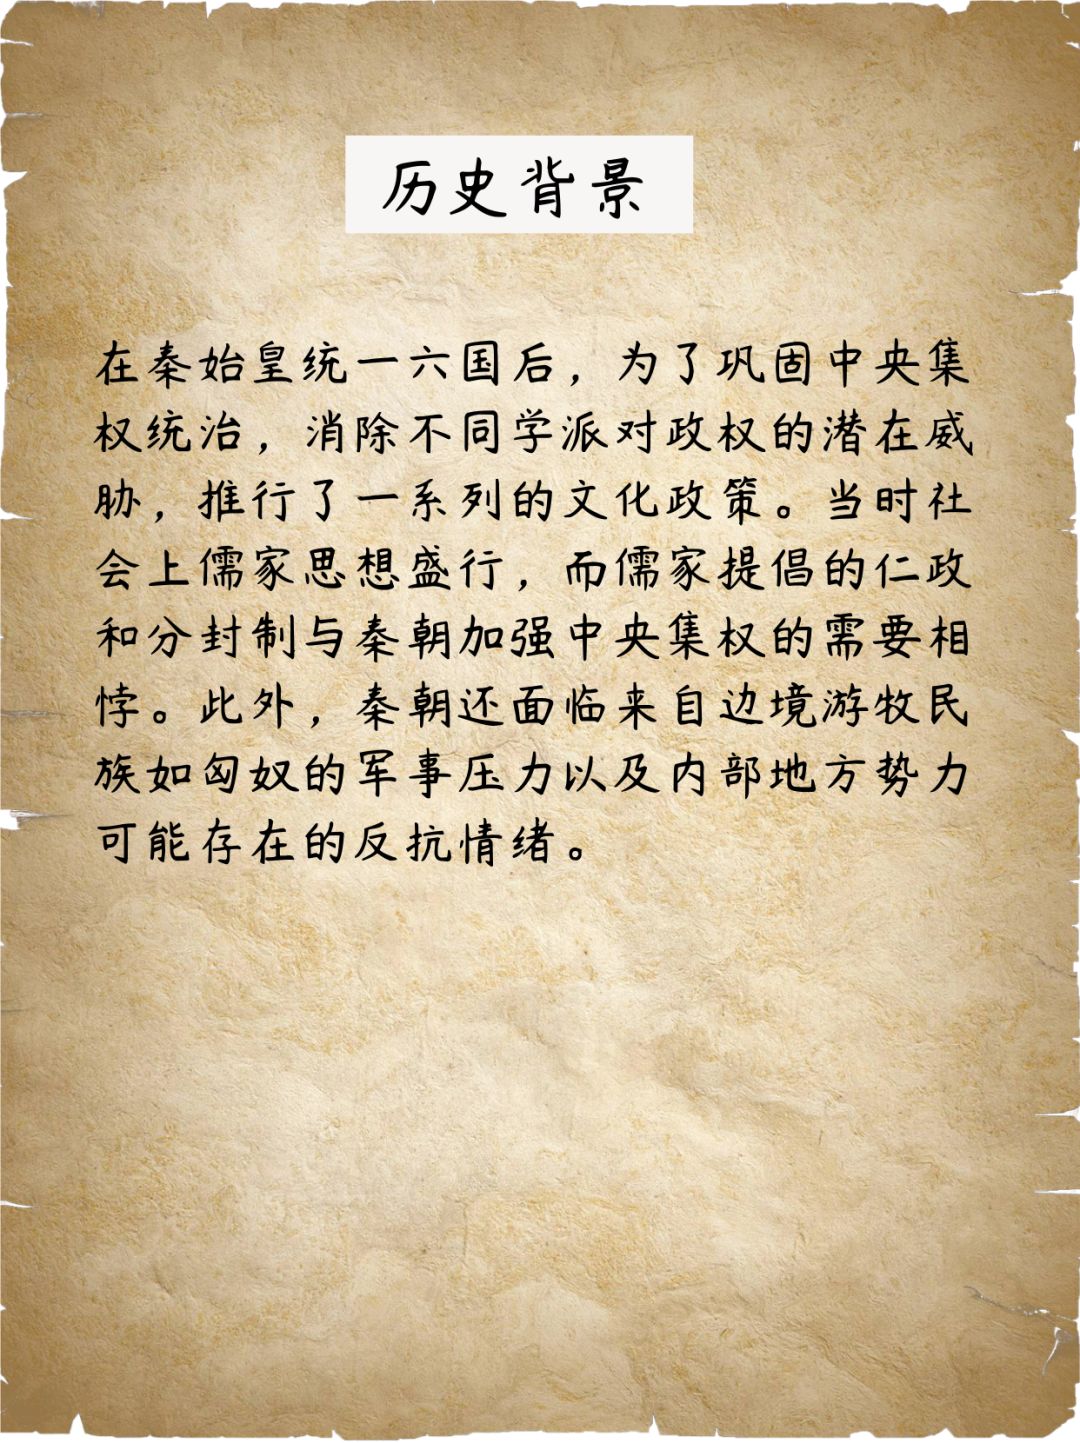 历史背景
在秦始皇统一六国后，为了巩固中央集
权统治，消除不同学派对政权的潜在威
胁，推行了一系列的文化政策。当时社
会上儒家思想盛行，而儒家提倡的仁政
和分封制与秦朝加强中央集权的需要相
悖。此外，秦朝还面临来自边境游牧民
族如匈奴的军事压力以及内部地方势力
可能存在的反抗情绪。